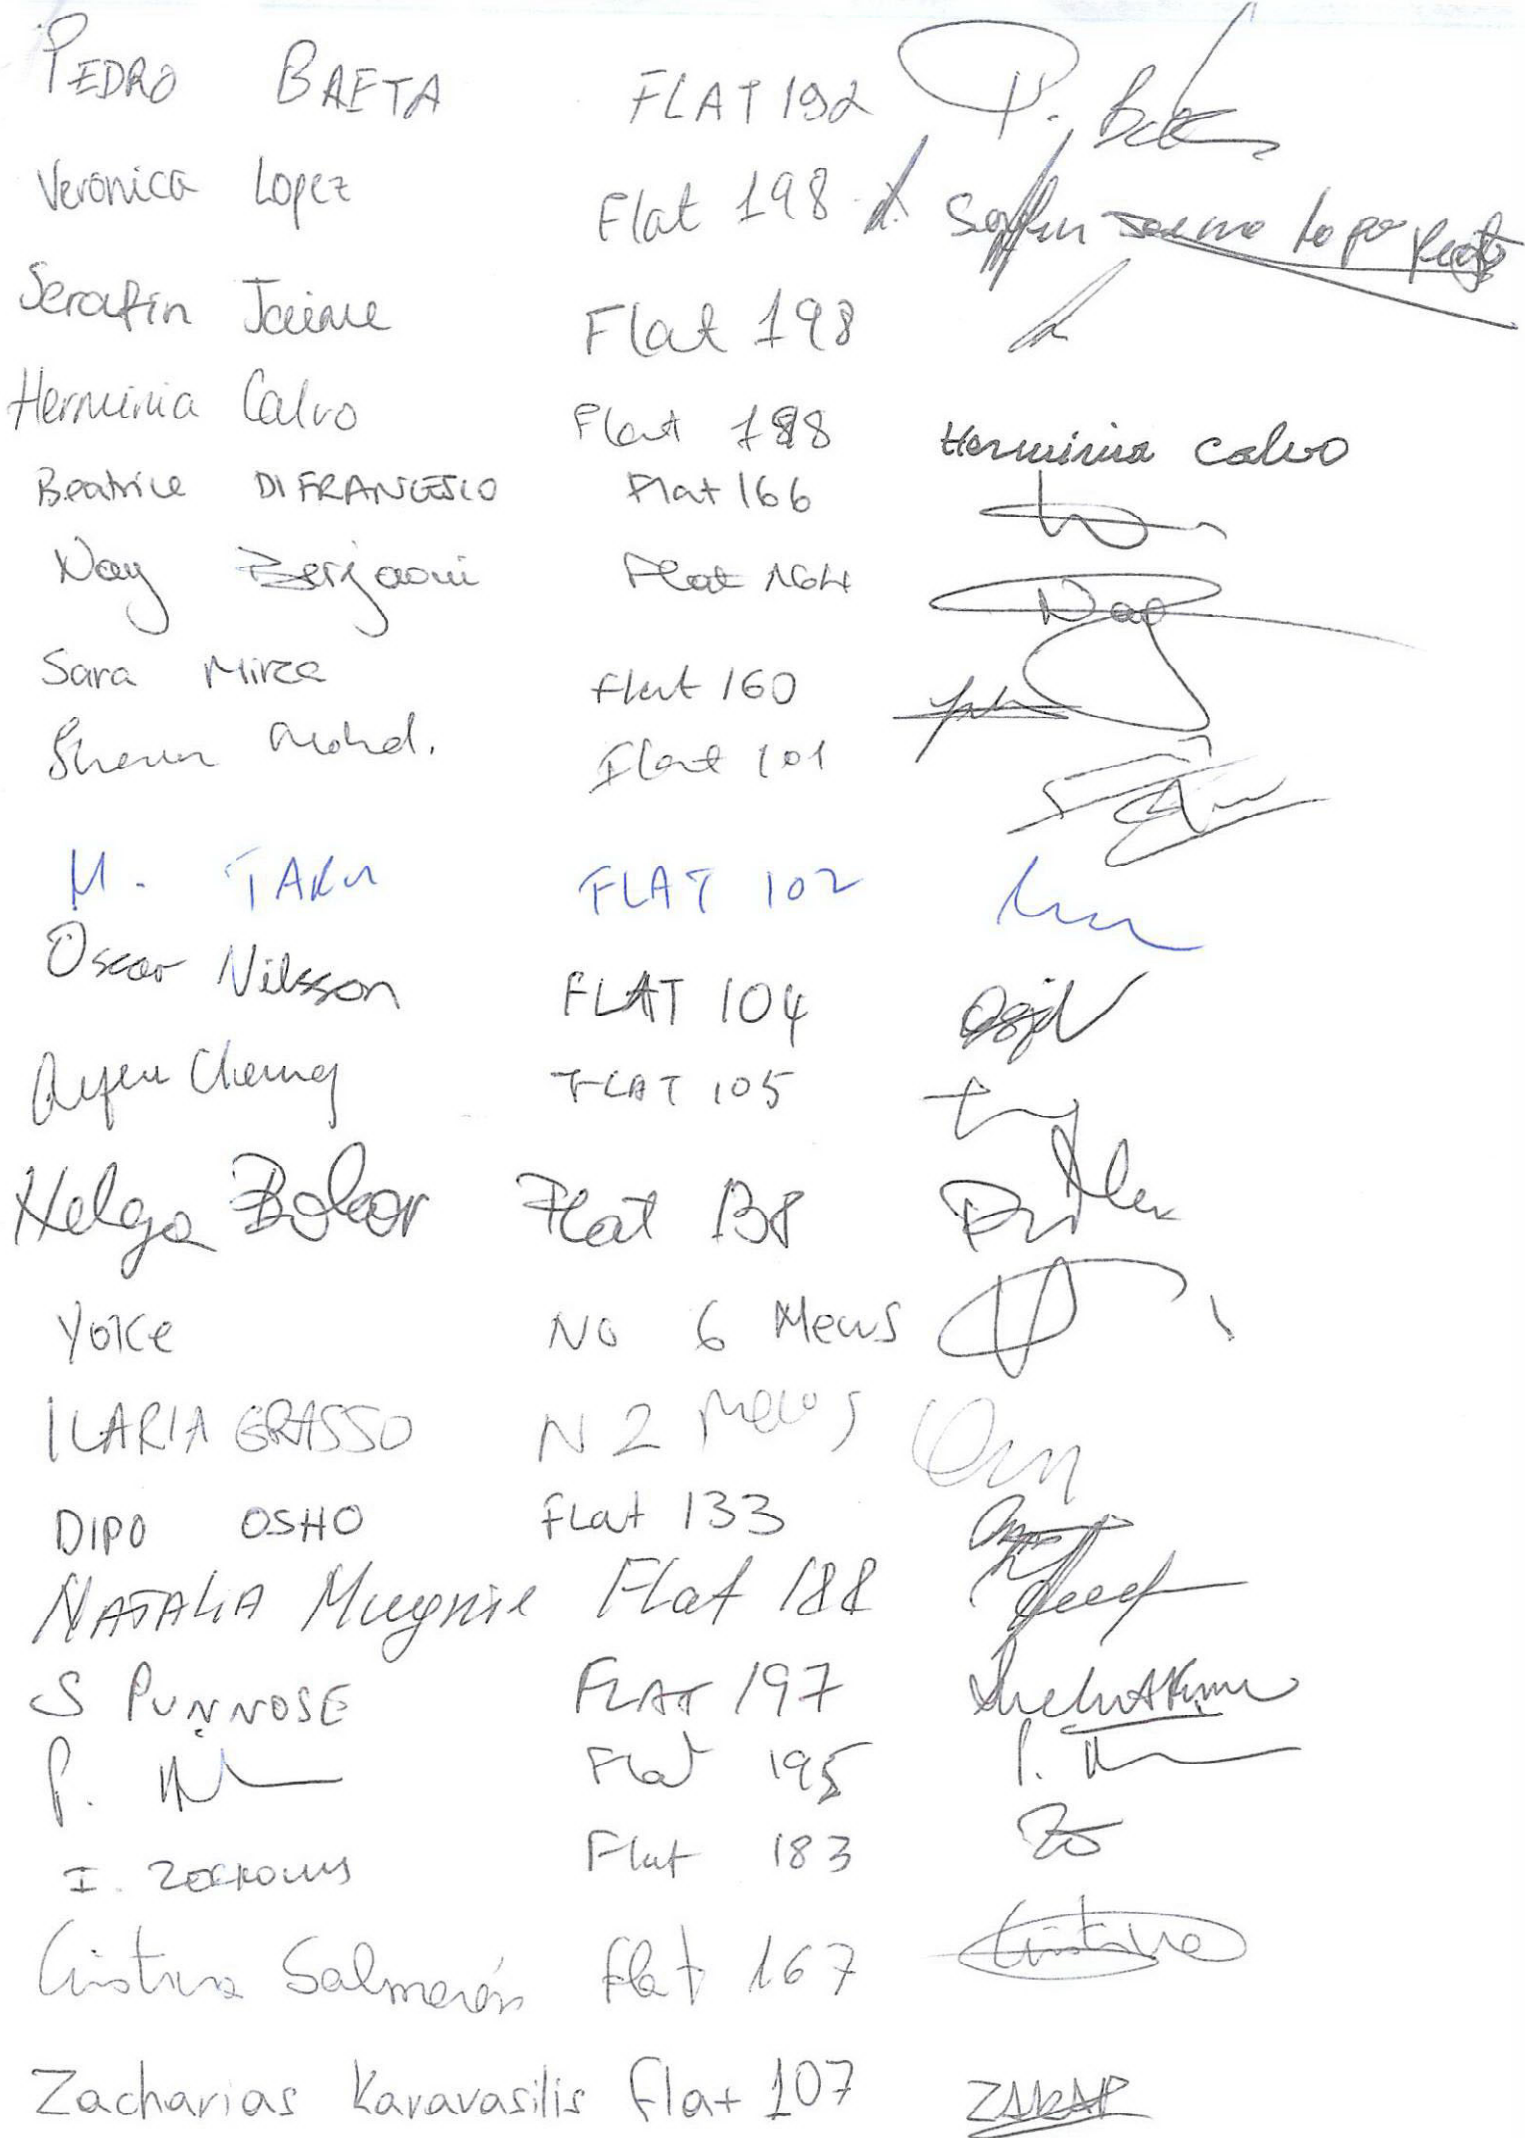 PEDRO BAETA FLAT 192 P. Bae
Veronica Lopez Flat 198
Serafin Jaime Flat 198
Herminia Calvo Flat 198 Herminia Calvo
Beatrice DI FRANCESCO Flat 166
Nay Berjaoui Flat 164 Nay
Sara Mirza Flat 160
Mohd. Flat 101
M. FLAT 102
Oscar Nilsson FLAT 104
Cheung FLAT 105
Helga Bokor Flat 138
YOKE NO 6 Mews
ILARIA GRASSO N 2 Mews
DIPO OSHO Flat 133
NATALIA Flat 188
S PUNNOSE FLAT 197
P. Flat 195 P.
I. Flat 183
Cristina Salmerón Flat 167 Cristina
Zacharias Karavasilis Flat 107 ZAKAR